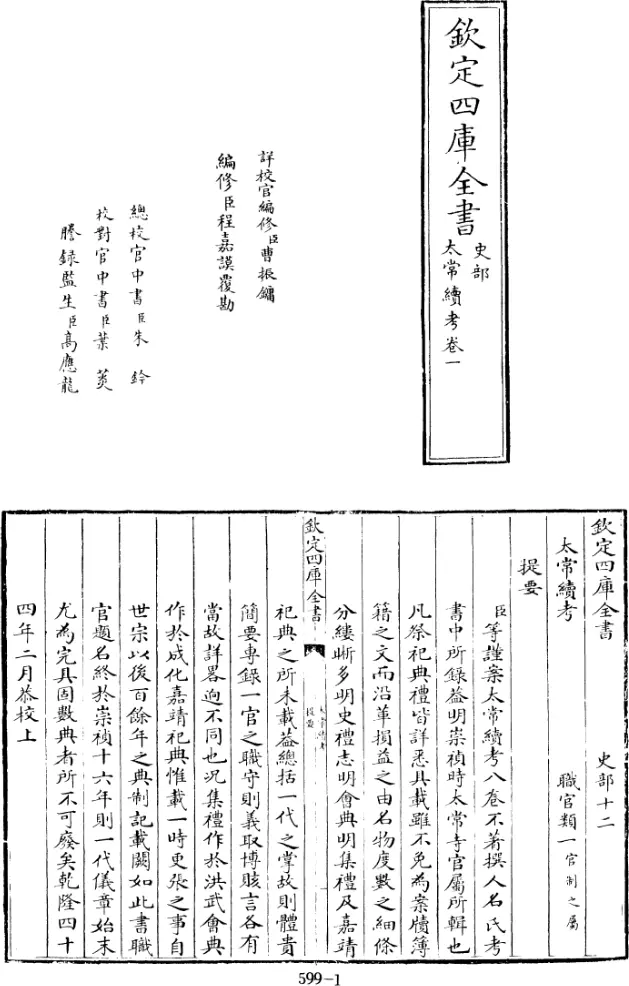 欽定四庫全書
史部
太常續考卷一
詳校官編修臣曹振鏞
編修臣程嘉謨覆勘
總校官中書臣朱鈐
校對官中書臣葉菼
謄錄監生臣高應龍
欽定四庫全書 史部十二
太常續考 職官類一官制之屬
提要
臣等謹案太常續考八卷不著撰人名氏考
書中所錄葢明崇禎時太常寺官屬所輯也
凡祭祀典禮皆詳悉具載雖不免為案牘簿
籍之文而沿革損益之由名物度數之細條
分縷晰多明史禮志明會典明集禮及嘉靖
欽定四庫全書
太常續考
提要
祀典之所未載葢總括一代之掌故則體貴
簡要專錄一官之職守則義取博賅言各有
當故詳畧迥不同也況集禮作於洪武會典
作於成化嘉靖祀典惟載一時更張之事自
世宗以後百餘年之典制記載闕如此書職
官題名終於崇禎十六年則一代儀章始末
尤為完具固數典者所不可廢矣乾隆四十
四年二月恭校上
599-1